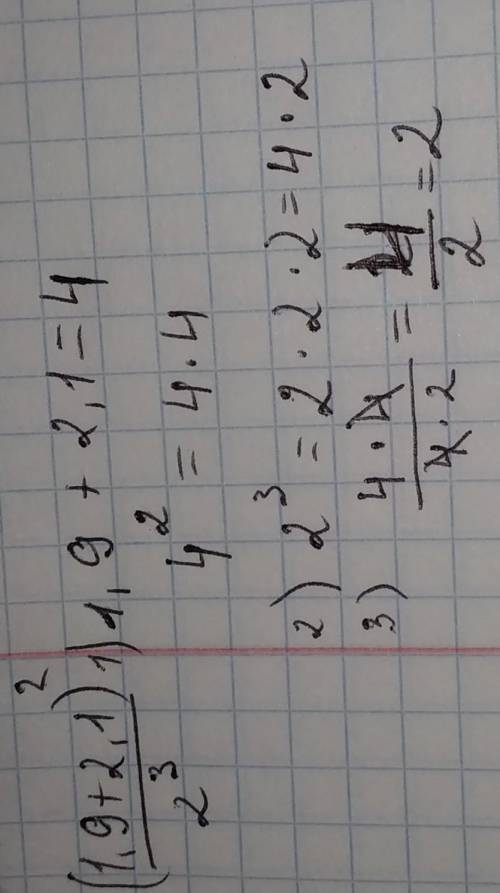 (1,9+2,1)² / 2³ 1) 1,9 + 2,1 = 4
4² = 4 · 4
2) 2³ = 2 · 2 · 2 = 4 · 2
3) 4 · 4 / 4 · 2 = 4 / 2 = 2